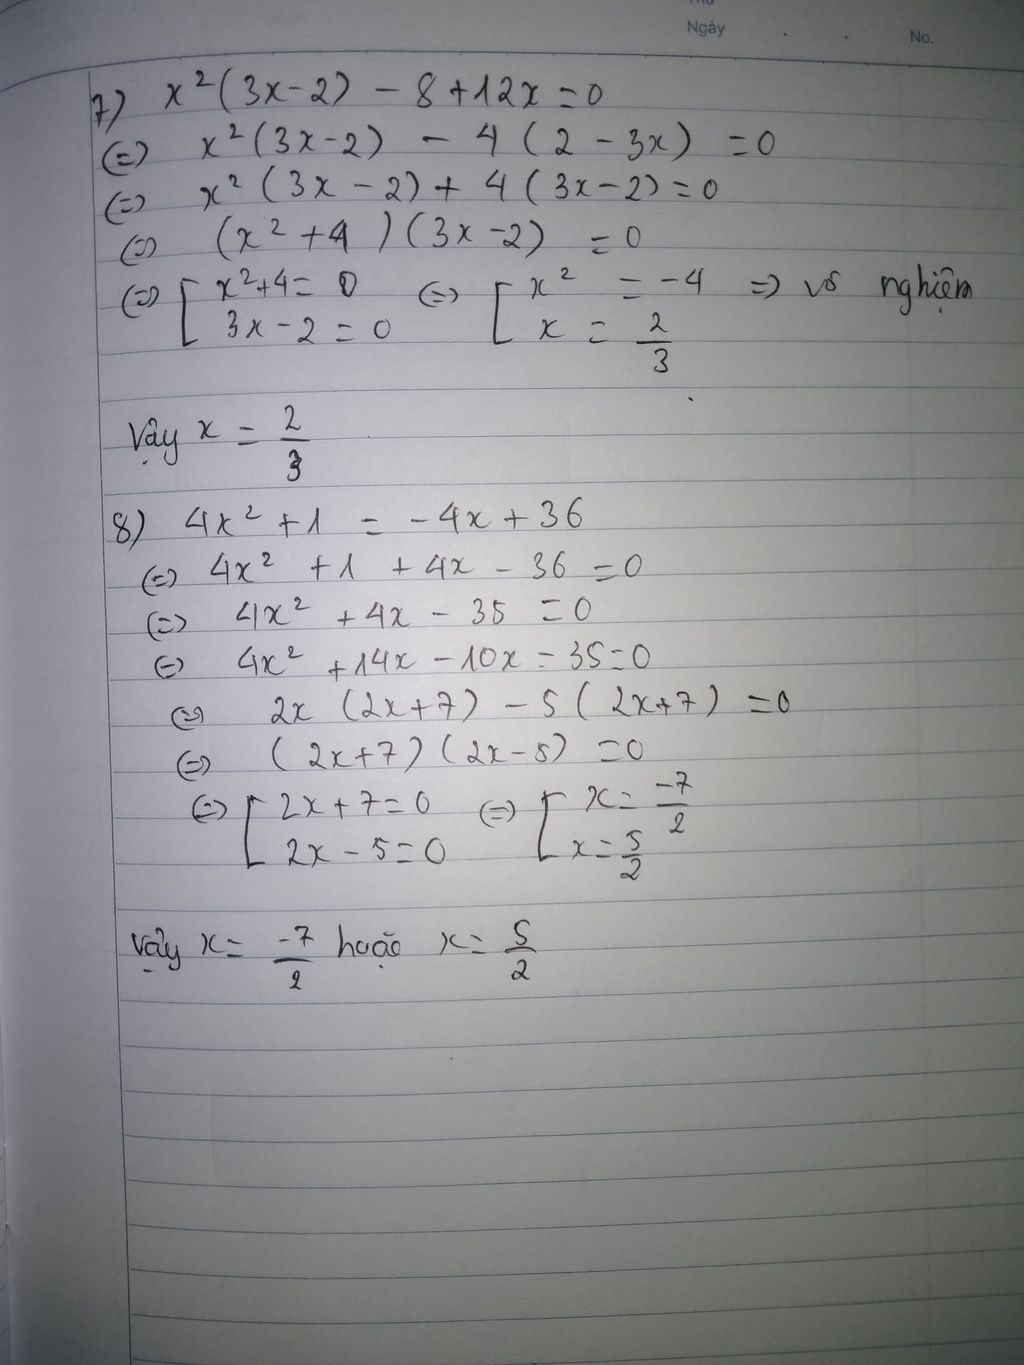 Thứ
Ngày . . No.
7) x²(3x-2) - 8+12x=0
(=) x²(3x-2) - 4(2-3x) =0
(=) x²(3x-2)+4(3x-2)=0
(=) (x²+4)(3x-2) =0
(=) [ x²+4=0 (=) [ x² =-4 => vô nghiệm
3x-2=0 x = 2/3
Vậy x = 2/3
8) 4x²+1 = -4x+36
(=) 4x² +1 +4x - 36 =0
(=) 4x² +4x - 35 =0
(=) 4x² +14x -10x - 35=0
(=) 2x (2x+7) - 5(2x+7) =0
(=) (2x+7)(2x-5) =0
(=) [ 2x+7=0 (=) [ x= -7/2
2x-5=0 x= 5/2
Vậy x= -7/2 hoặc x= 5/2